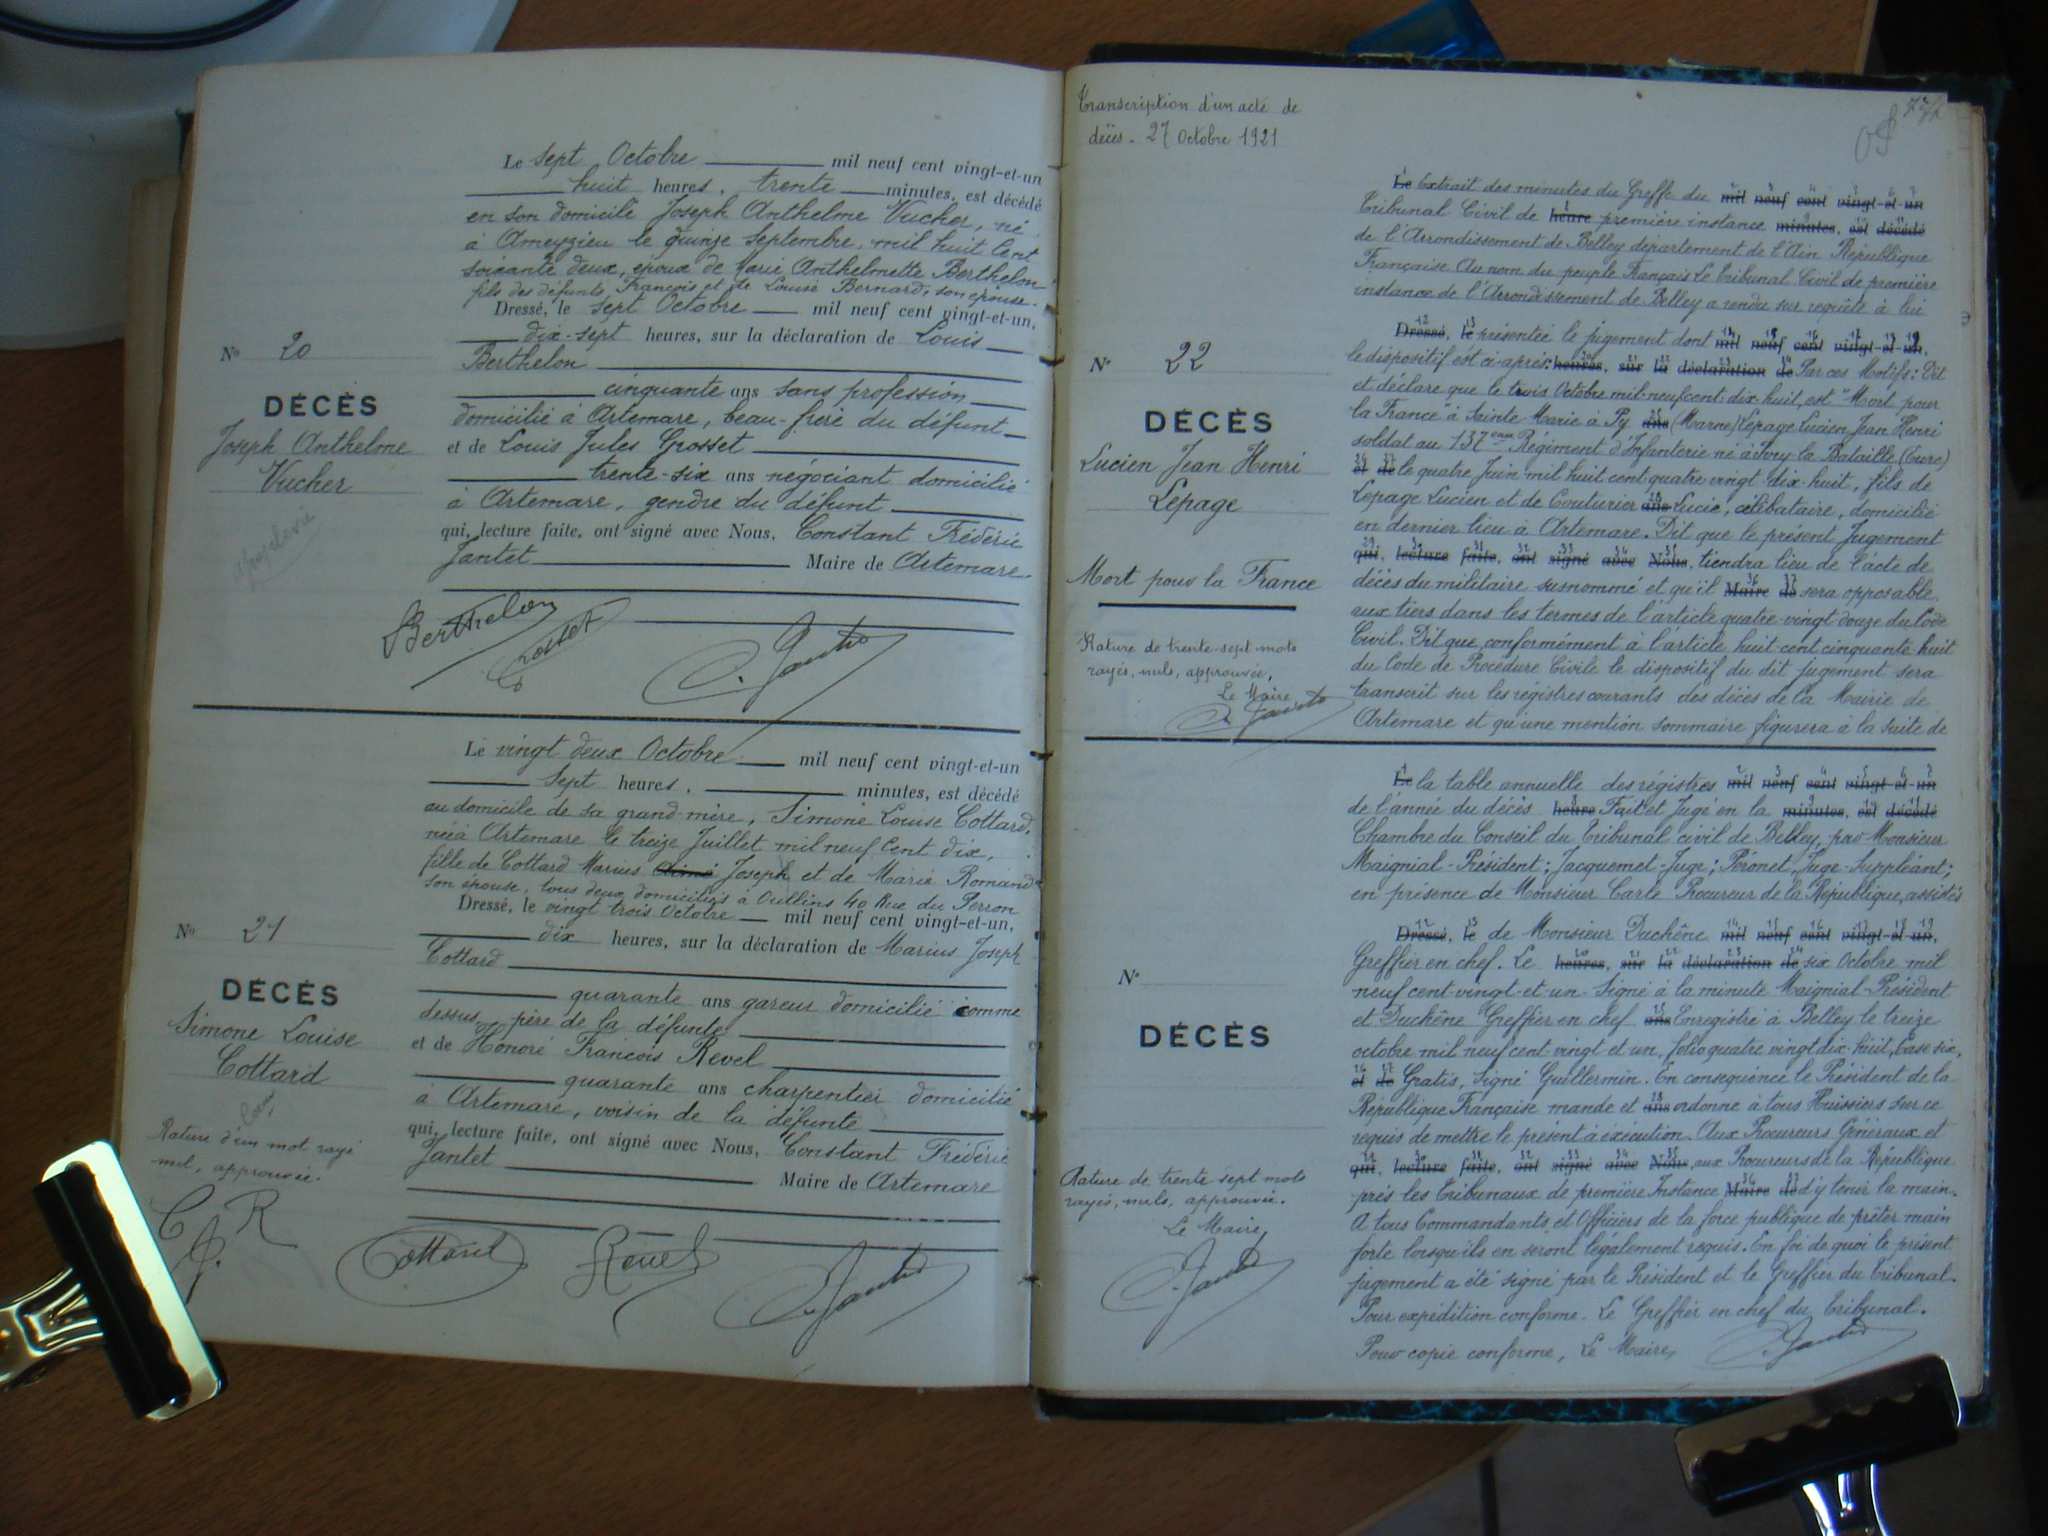 Le sept Octobre mil neuf cent vingt-et-un
huit heures, trente minutes, est décédé
en son domicile Joseph Anthelme Vucher, né
à Ameyzieu le quinze Septembre, mil huit Cent
soixante deux, époux de Marie Anthelmette Berthelon
fils des défunts, François et de Louise Bernard, son épouse.
Dressé, le sept Octobre mil neuf cent vingt-et-un,
dix-sept heures, sur la déclaration de Louis
Berthelon
cinquante ans sans profession
domicilié à Artemare, beau-frère du défunt
et de Louis Jules Grosset
trente-six ans négociant domicilié
à Artemare, gendre du défunt
qui, lecture faite, ont signé avec Nous, Constant Frédéric
Jantet Maire de Artemare.
N° 20
DÉCÈS
Joseph Anthelme
Vucher
apoplexie
Berthelon
Grosset
C. Jantet
Le vingt deux Octobre mil neuf cent vingt-et-un
sept heures, minutes, est décédé
au domicile de sa grand-mère, Simone Louise Cottard,
née à Artemare le treize Juillet mil neuf Cent dix,
fille de Cottard Marius Aimé Joseph et de Marie Romand
son épouse, tous deux domiciliés à Oullins 40 Rue du Perron
Dressé, le vingt trois Octobre mil neuf cent vingt-et-un,
dix heures, sur la déclaration de Marius Joseph
Cottard
quarante ans gareur domicilié comme
dessus, père de la défunte
et de Honoré François Revel
quarante ans charpentier domicilié
à Artemare, voisin de la défunte
qui, lecture faite, ont signé avec Nous, Constant Frédéric
Jantet Maire de Artemare
N° 21
DÉCÈS
Simone Louise
Cottard
Rature d'un mot rayé
nul, approuvée.
C R
J.
Cottard
Revel
C. Jantet
Transcription d'un acte de
décès. 27 Octobre 1921
N° 22
DÉCÈS
Lucien Jean Henri
Lepage
Mort pour la France
Rature de trente-sept mots
rayés, nuls, approuvée,
Le Maire
C. Jantet
Le Extrait des minutes du Greffe du mil neuf cent vingt-et-un
Tribunal Civil de heure première instance minutes, est décédé
de l'Arrondissement de Belley departement de l'Ain République
Française Au nom du peuple Français Le Tribunal Civil de première
instance de l'Arrondissement de Belley a rendu sur requête à lui
Dressé, le présentée le jugement dont mil neuf cent vingt-et-un,
le dispositif est ci-après: heures, sur la déclaration de Par ces Motifs: Dit
et déclare que le trois Octobre mil neuf cent dix-huit, est "Mort pour
la France" à Sainte Marie à Py ans (Marne) Lepage Lucien Jean Henri
soldat au 137eme Régiment d'Infanterie né à Ivry la Bataille (Eure)
et de le quatre Juin mil huit cent quatre vingt dix-huit, fils de
Lepage Lucien et de Couturier ans Lucie, célibataire, domicilié
en dernier lieu à Artemare. Dit que le présent Jugement
qui, lecture faite, ont signé avec Nous, tiendra lieu de l'acte de
décès du militaire susnommé et qu'il Maire de sera opposable
aux tiers dans les termes de l'article quatre-vingt-douze du Code
Civil. Dit que, conformément à l'article huit cent cinquante huit
du Code de Procédure Civile le dispositif du dit jugement sera
transcrit sur les registres courants des décès de la Mairie de
Artemare et qu'une mention sommaire figurera à la suite de
Le la table annuelle des régistres mil neuf cent vingt-et-un
de l'année du décès heure Fait et Jugé en la minutes, est décédé
Chambre du Conseil du Tribunal civil de Belley, par Monsieur
Maignial-Président; Jacquemet-Juge; Péronet, Juge-Suppléant;
en présence de Monsieur Carle Procureur de la République, assistés
Dressé, le de Monsieur Duchêne mil neuf cent vingt-et-un,
Greffier en chef. Le heures, sur la déclaration de six Octobre mil
neuf cent-vingt-et-un. Signé à la minute Maignial-Président
et Duchêne Greffier en chef ans Enregistré à Belley le treize
octobre mil neuf cent vingt et un, folio quatre vingt dix-huit, Case six,
et de Gratis, Signé Guillermin. En conséquence le Président de la
République Française mande et ans ordonne à tous Huissiers sur ce
requis de mettre le présent à exécution. Aux Procureurs Généraux et
qui, lecture faite, ont signé avec Nous, aux Procureurs de la République
près les Tribunaux de première Instance Maire de d'y tenir la main.
A tous Commandants et Officiers de la force publique de prêter main
forte lorsqu'ils en seront légalement requis. En foi de quoi le présent
jugement a été signé par le Président et le Greffier du Tribunal.
Pour expédition conforme. Le Greffier en chef du Tribunal.
Pour copie conforme, Le Maire, C. Jantet
N°
DÉCÈS
Rature de trente sept mots
rayés, nuls, approuvée.
Le Maire,
C. Jantet